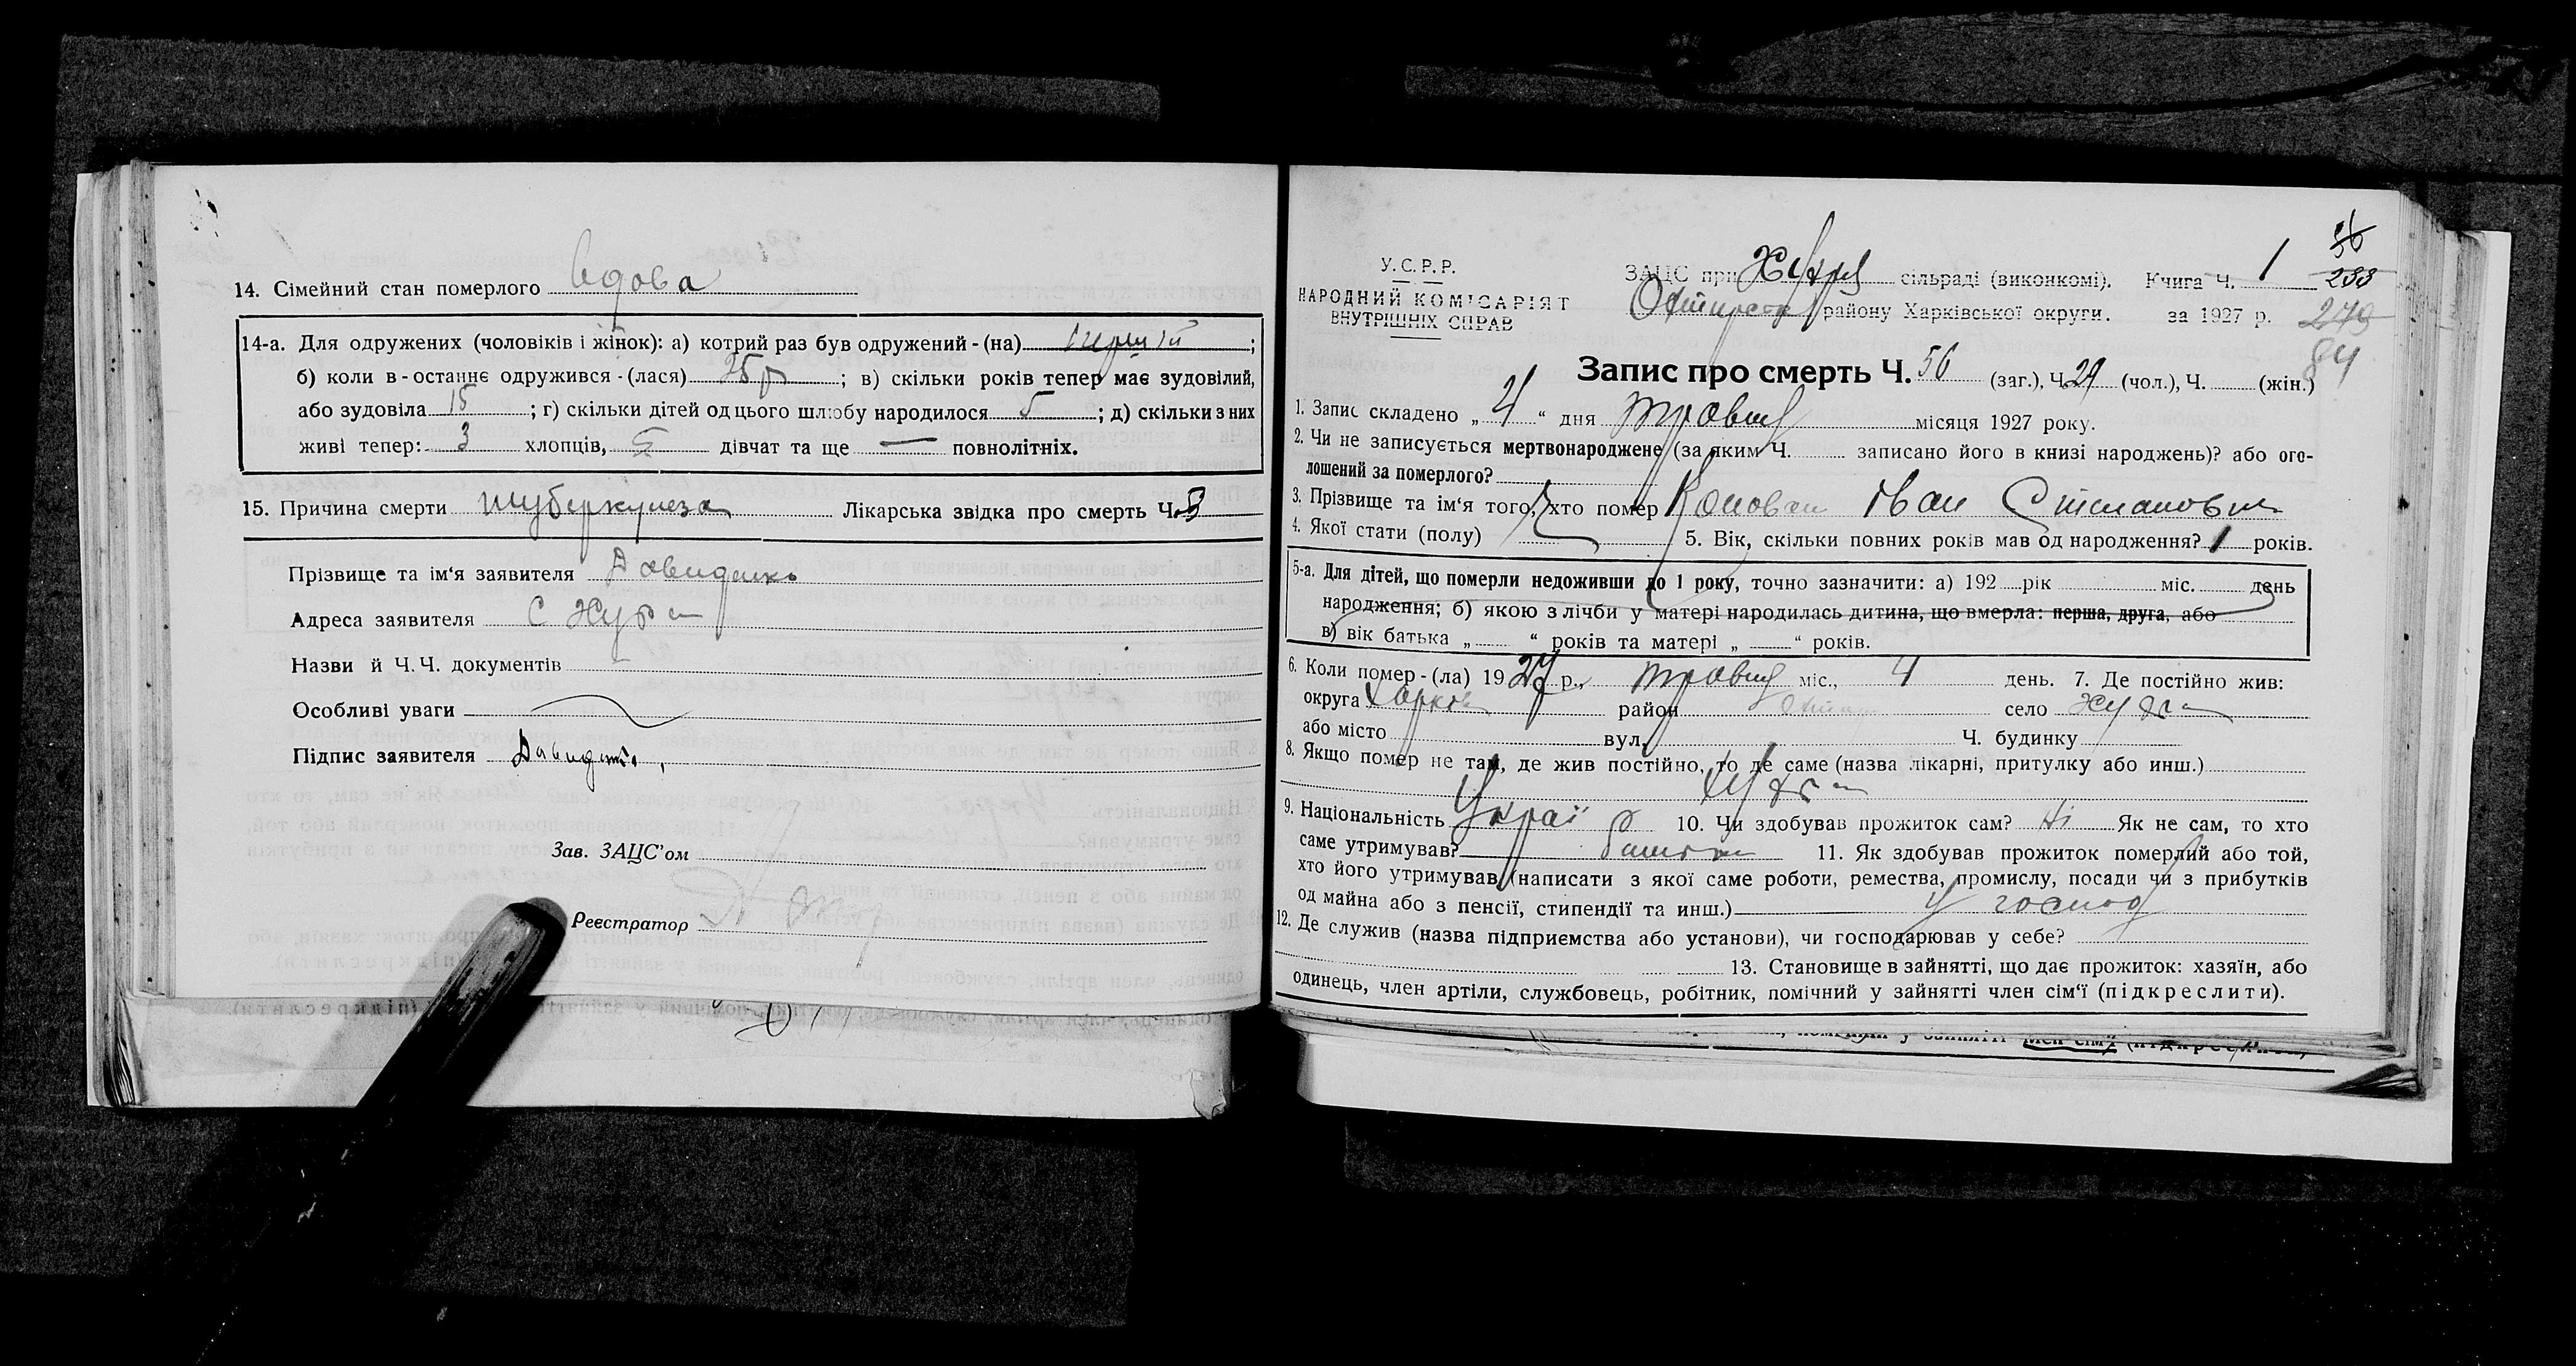 14. Сімейний стан померлого вдова
14-а. Для одружених (чоловіків і жінок): а) котрий раз був одружений-(на) перший ;
б) коли в-останнє одружився-(лася) ; в) скільки років тепер має зудовілий,
або зудовіла 15 ; г) скільки дітей од цього шлюбу народилося 5 ; д) скільки з них
живі тепер: 3 хлопців, дівчат та ще — повнолітніх.
15. Причина смерти туберкулеза Лікарська звідка про смерть Ч.
Прізвище та ім'я заявителя Давиденко
Адреса заявителя С
Назви й Ч.Ч. документів
Особливі уваги
Підпис заявителя
Зав. ЗАЦС'ом
Реєстратор
У.С.Р.Р.
НАРОДНИЙ КОМІСАРІЯТ
ВНУТРІШНІХ СПРАВ
ЗАЦС при сільраді (виконкомі). Книга Ч. 1
району Харківської округи. за 1927 р.
36
233
279
84
Запис про смерть Ч. 56 (заг.), Ч. 29 (чол.), Ч. (жін.)
1. Запис складено „ 4 “ дня травня місяця 1927 року.
2. Чи не записується мертвонароджене (за яким Ч. записано його в книзі народжень)? або ого-
лошений за померлого?
3. Прізвище та ім'я того, хто помер Іван Степанович
4. Якої стати (полу) 5. Вік, скільки повних років мав од народження? 1 років.
5-а. Для дітей, що померли недоживши до 1 року, точно зазначити: а) 192 рік міс. день
народження; б) якою з лічби у матері народилась дитина, що вмерла: перша, друга, або
в) вік батька „ “ років та матері „ “ років.
6. Коли помер-(ла) 1927 р., травня міс., 4 день. 7. Де постійно жив:
округа Харків район село
або місто вул. Ч. будинку
8. Якщо помер не там, де жив постійно, то де саме (назва лікарні, притулку або инш.)
9. Національність Украї 10. Чи здобував прожиток сам? Ні Як не сам, то хто
саме утримував? 11. Як здобував прожиток померлий або той,
хто його утримував (написати з якої саме роботи, ремества, промислу, посади чи з прибутків
од майна або з пенсії, стипендії та инш.) у господ
12. Де служив (назва підприємства або установи), чи господарював у себе?
13. Становище в зайнятті, що дає прожиток: хазяїн, або
одинець, член артілі, службовець, робітник, помічний у зайнятті член сім'ї (підкреслити).